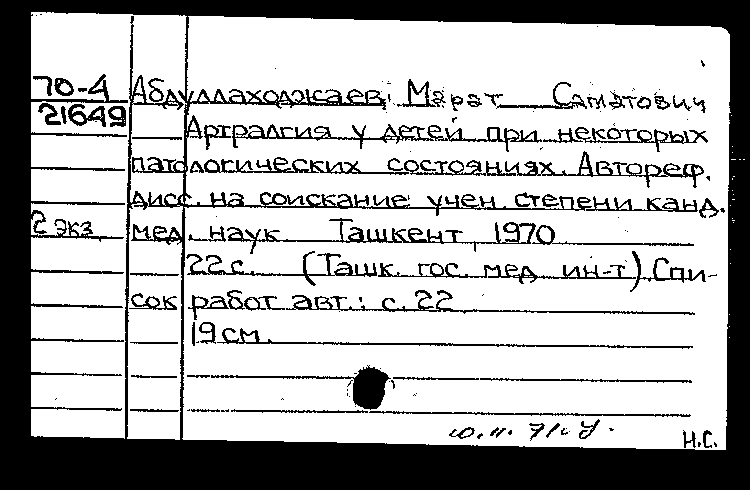 70-4 Абдуллаходжаев, Марат Саматович
21649 Артралгия у детей при некоторых
патологических состояниях. Автореф.
дисс. на соискание учен. степени канд.
2 экз. мед. наук Ташкент, 1970
22 с. (Ташк. гос. мед. ин-т) Спи-
сок работ авт.: с. 22
19 см.
Н.С.